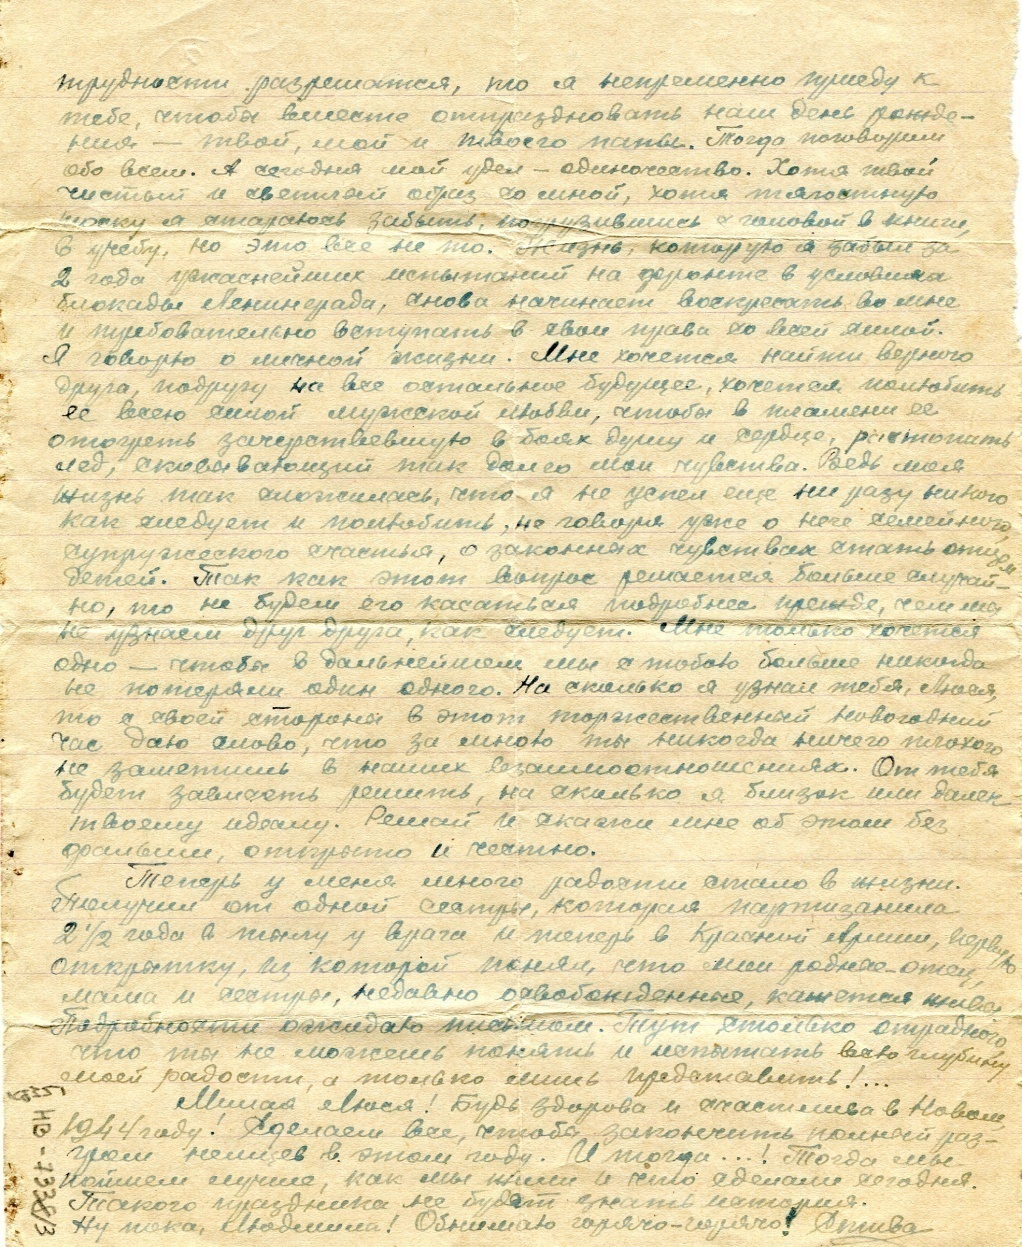 трудности разрешатся, то я непременно приеду к
тебе, чтобы вместе отпраздновать наш день рожде-
ния — твой, мой и твоего папы. Тогда поговорим
обо всем. А сегодня мой удел — одиночество. Хотя твой
чистый и светлый образ со мной, хотя тягостную
тоску я стараюсь забыть, погрузившись с головой в книги,
в учебу, но это все не то. Жизнь, которую я забыл за
2 года ужаснейших испытаний на фронте в условиях
блокады Ленинграда, снова начинает воскресать во мне
и требовательно вступать в свои права со всей силой.
Я говорю о личной жизни. Мне хочется найти верного
друга, подругу на все остальное будущее, хочется полюбить
ее всею силой мужской любви, чтобы в пламени ее
отогреть зачерствевшую в боях душу и сердце, растопить
лед, сковывающий так долго мои чувства. Ведь моя
жизнь так сложилась, что я не успел еще ни разу никого
как следует и полюбить, не говоря уже о неге семейного,
супружеского счастья, о законных чувствах стать отцом
детей. Так как этот вопрос решается больше случай-
но, то не будем его касаться подробнее прежде, чем мы
не узнаем друг друга, как следует. Мне только хочется
одно — чтобы в дальнейшем мы с тобою больше никогда
не потеряли один одного. На сколько я узнал тебя, Люся,
то с своей стороны в этот торжественный новогодний
час даю слово, что за мною ты никогда ничего плохого
не заметишь в наших взаимоотношениях. От тебя
будет зависеть решить, на сколько я близок или далек
твоему идеалу. Решай и скажи мне об этом без
фальши, открыто и честно.
Теперь у меня много радости стало в жизни.
Получил от одной сестры, которая партизанила
2 1/2 года в тылу у врага и теперь в Красной Армии, первую
открытку, из которой понял, что мои родные – отец,
мама и сестры, недавно освобожденные, кажется живы.
Подробности ожидаю письмом. Тут столько отрадного,
что ты не можешь понять и испытать всю глубину
моей радости, а только лишь представить!...
Милая Люся! Будь здорова и счастлива в Новом,
1944 году! Сделаем все, чтобы закончить полный раз-
гром немцев в этом году. И тогда...! Тогда мы
поймем лучше, как мы жили и что сделали сегодня.
Такого праздника не будет знать история.
Ну пока, Людмила! Обнимаю горячо-горячо!
НВ-7338/3